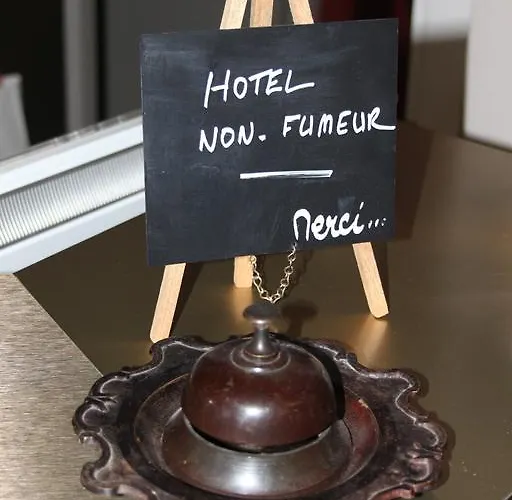 HOTEL
NON. FUMEUR
Merci...